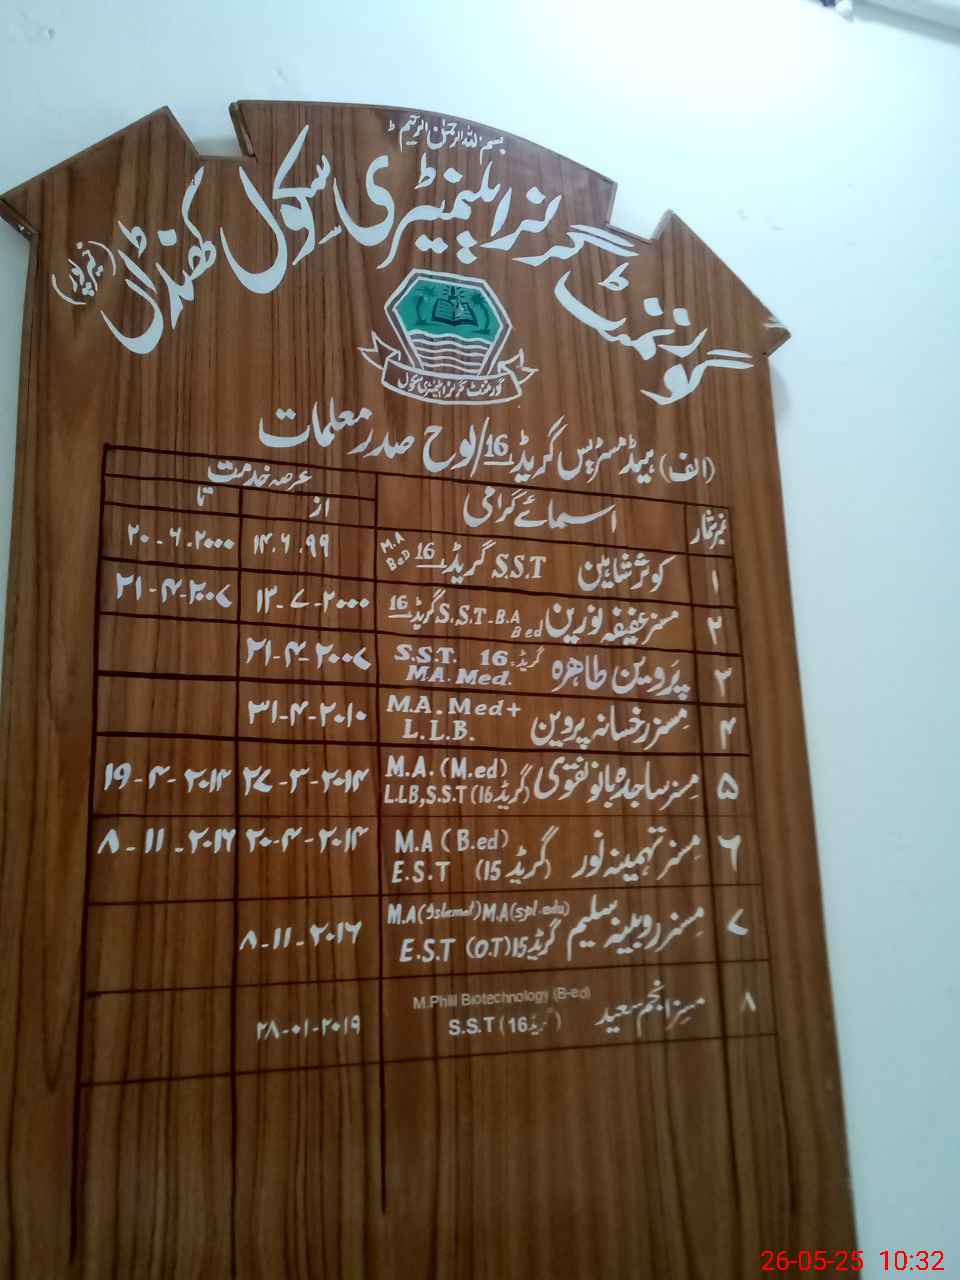 بسم اللہ الرحمٰن الرحیم
گورنمنٹ گرلز ایلیمنٹری سکول کھنڈاں (خیرپور)
گورمنٹ گرلز ایلیمنٹری سکول
(الف) ہیڈ مسٹریس گریڈ 16/لوح صدر معلمات
نمبر شمار اسمائے گرامی عرصہ خدمت
از تا
۱ کوثر شاہین S.S.T گریڈ 16 M.A BeD ۱۴.۶.۹۹ ۲۰-۶.۲۰۰۰
۲ مسز عفیفہ نورین S.S.T-B.A Bed گریڈ 16 ۱۲-۷-۲۰۰۰ ۲۱-۴-۲۰۰۷
۳ پروین طاہرہ S.S.T. 16 گریڈ M.A. Med. ۲۱-۴-۲۰۰۷
۴ مسز رخسانہ پروین M.A. Med + L.L.B. ۳۱-۴-۲۰۱۰
۵ مسز ساجدہ بانو نقوی M.A. (M.ed) L.LB, S.S.T (گریڈ 16) ۲۷-۳-۲۰۱۴ ۱۹-۴-۲۰۱۴
۶ مسز تہمینہ نور M.A (B.ed) E.S.T (گریڈ 15) ۲۰-۴-۲۰۱۴ ۸-۱۱-۲۰۱۶
۷ مسز روبینہ سلیم M.A (Islamat) M.A (spl.edu) E.S.T (O.T) گریڈ 15 ۸-۱۱-۲۰۱۶
۸ مسز انجم سعید M.Phill Biotechnology (B-ed) S.S.T (گریڈ 16) ۲۸-۰۱-۲۰۱۹
26-05-25 10:32